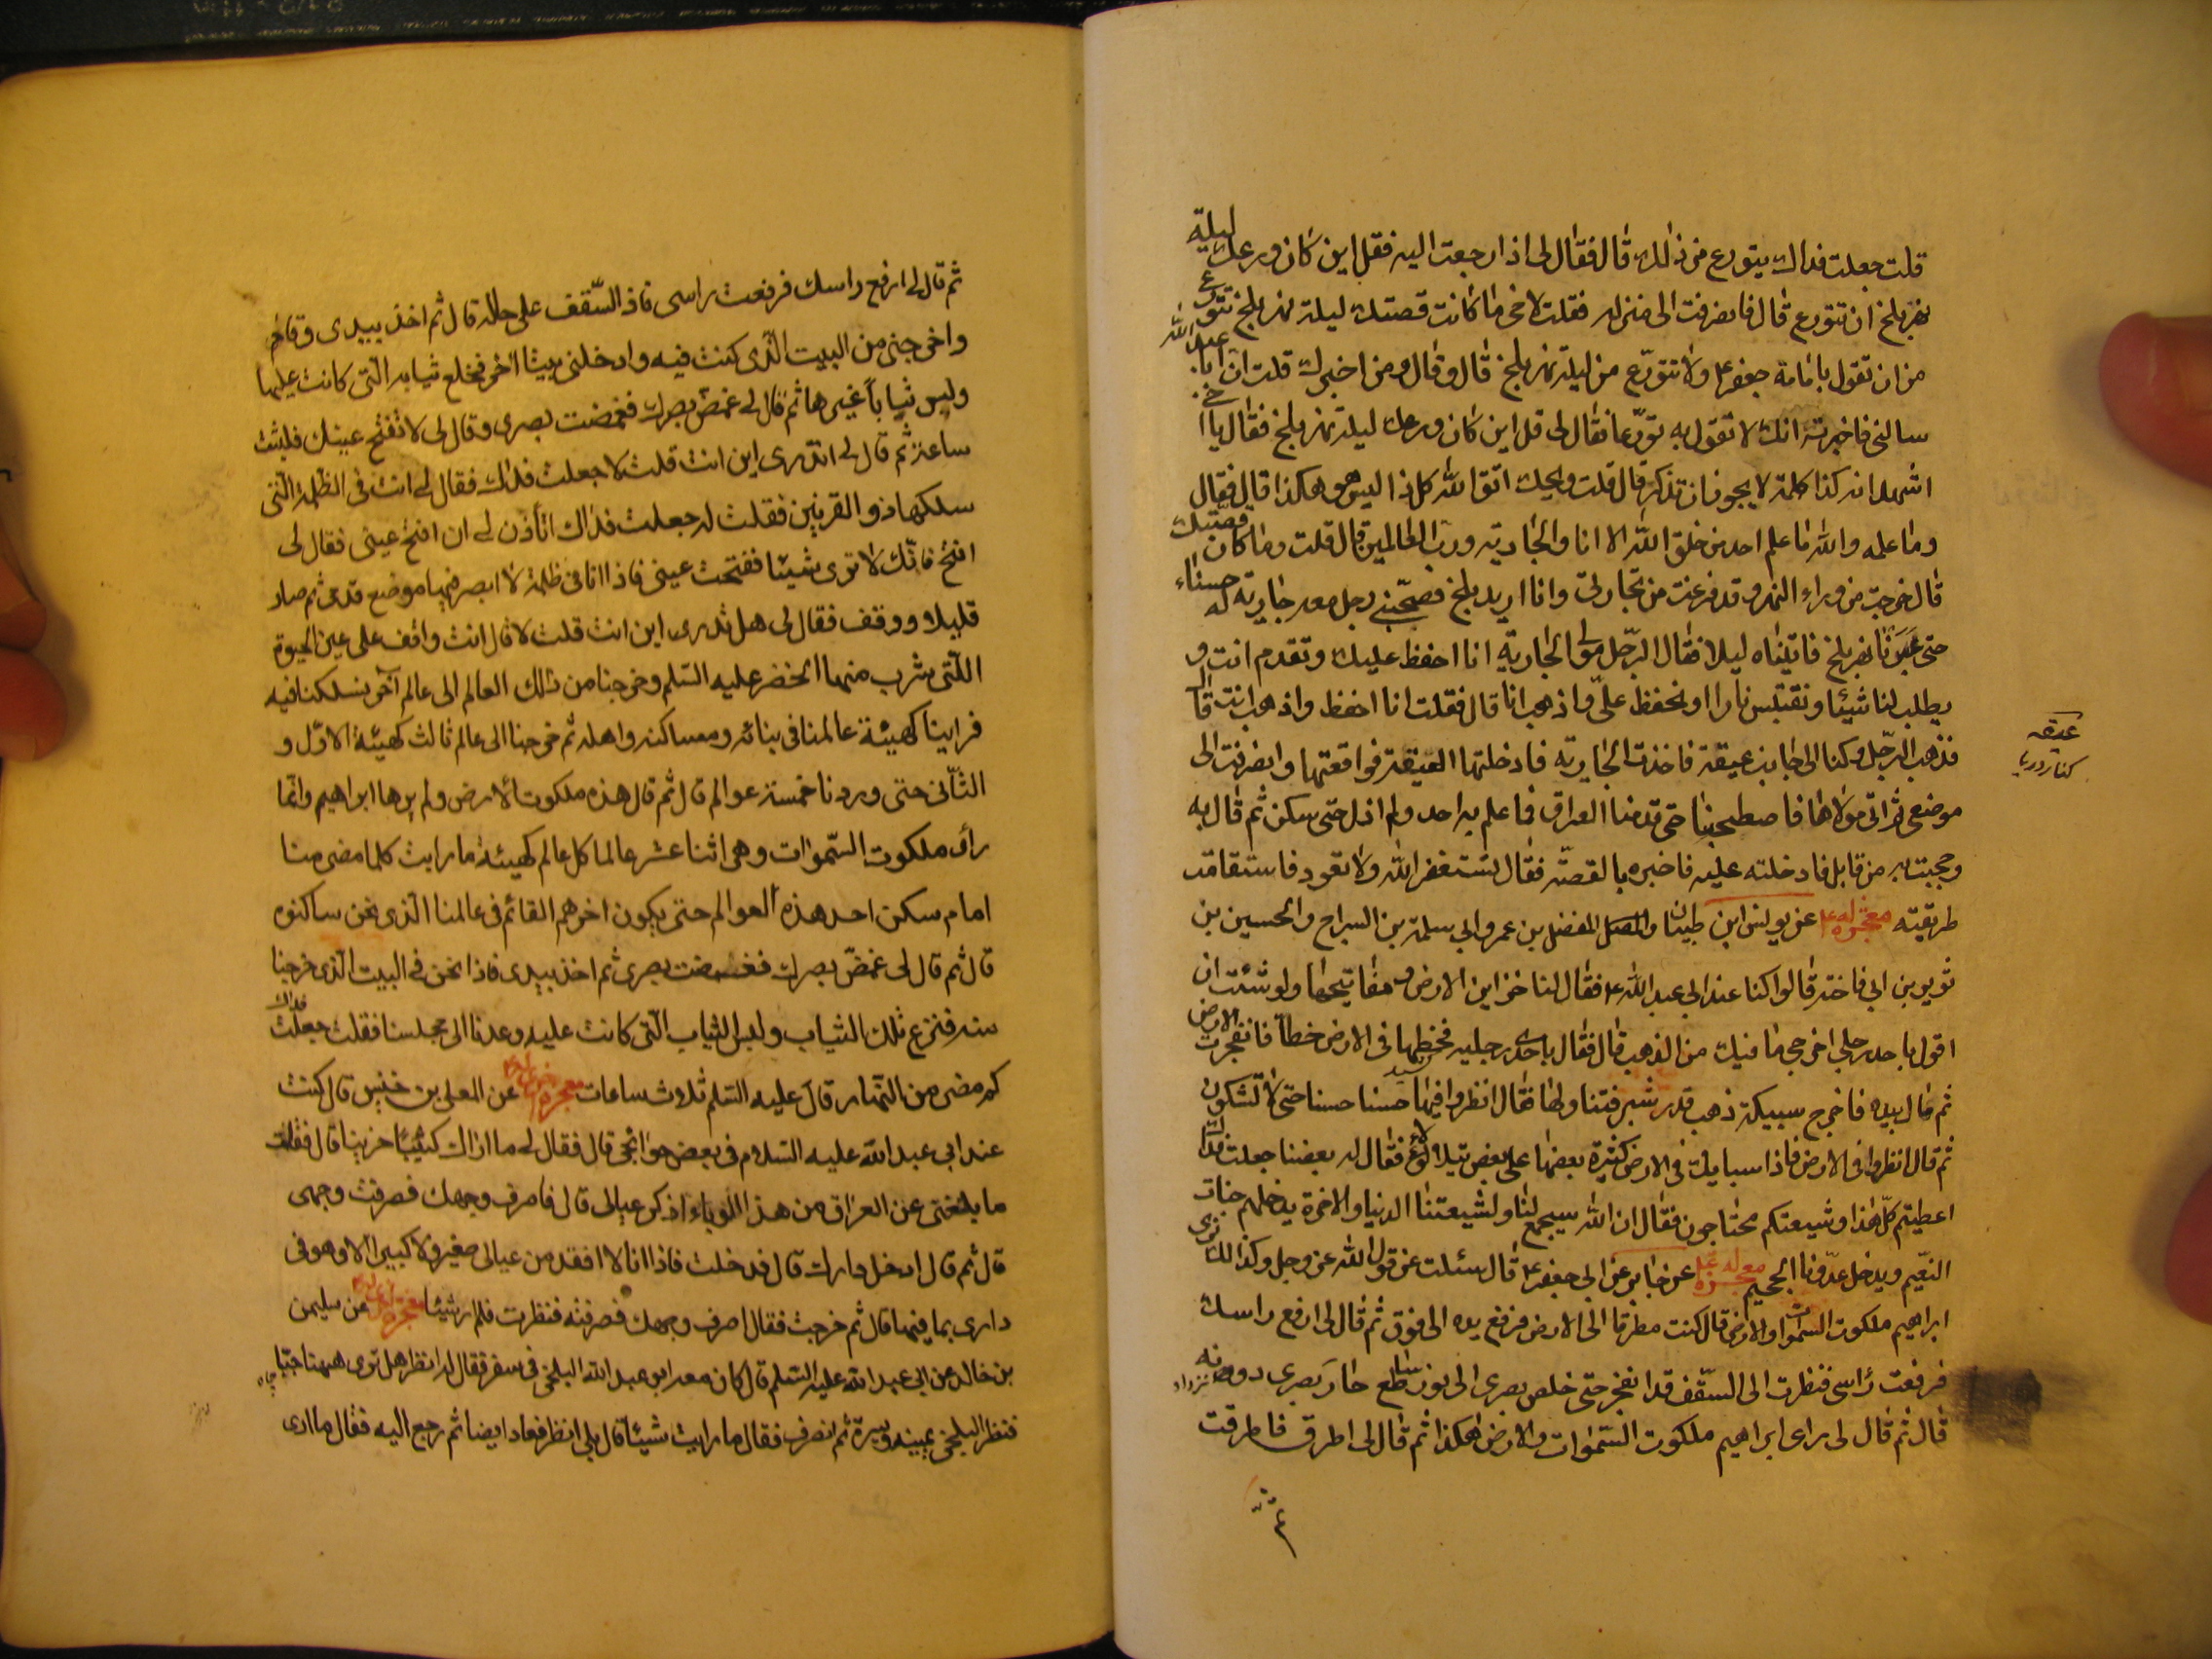 قلت جعلت فداك يتورع من ذلك قال فقال لى اذا رجعت اليه فقل اين كان ورعك ليلة
نهر بلخ ان تتورع قال فانصرفت الى منزله فقلت لاخى ما كانت قصتك ليلة نهر بلخ تتورع
من ان تقول بامامة جعفر ع ولا تتورع من ليلة نهر بلخ قال وقال ومن اخبرك قلت ان ابا عبد الله
سالنى فاخبرته انك لا تقول به تورعا فقال لى قل اين كان ورعك ليلة نهر بلخ فقال يا اخى
اشهد انه كذا كلمة لا يجوز ان تذكر قال قلت ويحك اتق الله كل ذا ليس هو هكذا قال فقال
وما علمه والله ما علم احد من خلق الله الا انا والجارية ورب العالمين قال قلت وما كان قصتك
قال خرجت من وراء النهر وقد فرغت من تجارتى وانا اريد بلخ فصحبنى رجل معه جارية له حسناء
حتى عبرنا نهر بلخ فاتيناه ليلا فقال الرجل مولى الجارية انا احفظ عليك وتقدم انت و
يطلب لنا شيئا وتقتبس نارا او تحفظ على واذهب انا قال فقلت انا احفظ واذهب انت قال
فذهب الرجل وكنا الى جانب غيقة فاخذت الجارية فادخلتها الغيقة فواقعتها وانصرفت الى
موضعى ثم اتى مولاها فاصطحبنا حتى قدمنا العراق فما علم به احد ولم ازل حتى سكن ثم قال به
وحججت به من قابل فادخلته عليه فاخبره بالقصة فقال تستغفر الله ولا تعود فاستقامت
طريقته معجزه له ع عن يونس ابن ظبيان والمفضل بن عمر وابى سلمة بن السراج والحسين بن
ثوير بن ابى فاخته قالوا كنا عند ابى عبد الله ع فقال لنا خزاين الارض ومفاتيحها ولو شئت ان
اقول باحدى رجلى اخرجى ما فيك من الذهب قال فقال باحدى رجليه فخطها فى الارض خطا فانفجرت الارض
ثم قال بيده فاخرج سبيكة ذهب قدر شبر فتناولها فقال انظروا فيها حسنا حسنا حتى لا تشكون
ثم قال انظروا فى الارض فاذا سبايك فى الارض كثيرة بعضها على بعض تتلالؤ فقال له بعضنا جعلت فداك
اعطيتم كل هذا وشيعتكم محتاجون فقال ان الله سيجمع لنا ولشيعتنا الدنيا والاخرة يدخلهم جنات
النعيم ويدخل عدونا الجحيم معجزه له ع عن جابر عن ابى جعفر ع قال سئلت عن قول الله عز وجل وكذلك نرى
ابراهيم ملكوت السموات والارض قال كنت مطرقا الى الارض فرفع يده الى فوق ثم قال لى ارفع راسك
فرفعت راسى فنظرت الى السقف قد انفجر حتى خلص بصرى الى نور ساطع حار بصرى دونه
قال ثم قال لى راى ابراهيم ملكوت السموات والارض هكذا ثم قال لى اطرق فاطرقت
غيقه
كنار دريا
ثم قال لى ارفع راسك فرفعت راسى فاذ السقف على حاله قال ثم اخذ بيدى وقام
واخرجنى من البيت الذى كنت فيه وادخلنى بيتا اخر فخلع ثيابه التى كانت عليها
ولبس ثيابا غيرها ثم قال لى غمض بصرك فغمضت بصرى وقال لى لا تفتح عينك فلبثت
ساعة ثم قال لى اتدرى اين انت قلت لا جعلت فداك فقال لى انت فى الظلمة التى
سلكها ذو القرنين فقلت له جعلت فداك اتأذن لى ان افتح عينى فقال لى
افتح فانك لا ترى شيئا ففتحت عينى فاذا انا فى ظلمة لا ابصر فيها موضع قدمى ثم صار
قليلا ووقف فقال لى هل تدرى اين انت قلت لا قال انت واقف على عين الحيوة
اللتى شرب منها الخضر عليه السلم وخرجنا من ذلك العالم الى عالم آخر فسلكنا فيه
فراينا كهيئة عالمنا فى بنائه ومساكنه واهله ثم خرجنا الى عالم ثالث كهيئة الاول و
الثانى حتى وردنا خمسة عوالم قال ثم قال هذه ملكوت الارض ولم يرها ابراهيم وانما
رأى ملكوت السموات وهى اثنا عشر عالما كل عالم كهيئة ما رايت كلما مضى منا
امام سكن احد هذه العوالم حتى يكون اخرهم القائم فى عالمنا الذى نحن ساكنوه
قال ثم قال لى غمض بصرك فغمضت بصرى ثم اخذ بيدى فاذا نحن فى البيت الذى خرجنا
منه فنزع تلك الثياب ولبس الثياب التى كانت عليه وعدنا الى مجلسنا فقلت جعلت فداك
كم مضى من النهار قال عليه السلم ثلاث ساعات معجزه عن المعلى بن خنيس قال كنت
عند ابى عبد الله عليه السلام فى بعض حوائجى قال فقال لى ما اراك كئيبا حزينا قال فقلت
ما بلغنى عن العراق من هذا الوباء اذكر عيالى قال فاصرف وجهك فصرفت وجهى
قال ثم قال ادخل دارك قال فدخلت فاذا انا لا افقد من عيالى صغير ولا كبيرا الا وهو فى
دارى بما فيها قال ثم خرجت فقال اصرف وجهك فصرفته فنظرت فلم ار شيئا معجزه عن سليمن
بن خالد عن ابى عبد الله عليه السلم قال كان معه ابو عبد الله البلخى فى سفر فقال له انظر هل ترى ههنا جبا
فنظر البلخى يمينه ويسرة ثم انصرف فقال ما رايت شيئا قال بلى انظر فعاد ايضا ثم رجع اليه فقال ما ارى